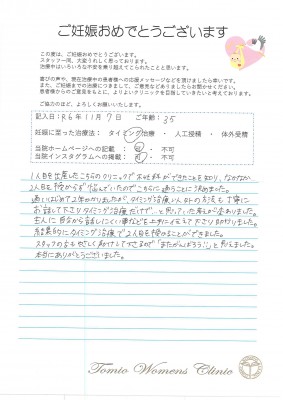 ご妊娠おめでとうございます
この度は、ご妊娠おめでとうございます。
スタッフ一同、大変うれしく思っております。
治療中はいろいろな不安を乗り越えてこられたことと思います。
喜びの声や、現在治療中の患者様への応援メッセージなどを頂けましたら幸いです。
また、ご妊娠までの治療につきまして、ご意見などありましたらお書きください。
患者様からのご意見をもとに、よりよいクリニックを目指していきたいと考えております。
ご協力のほど、よろしくお願いいたします。
記入日：R6年11月7日 ご年齢：35
妊娠に至った治療法： タイミング治療 ・ 人工授精 ・ 体外受精
当院ホームページへの記載： 可 ・ 不可
当院インスタグラムへの掲載： 可 ・ 不可
1人目を出産したこちらのクリニックで不妊治療ができることを知り、なかなか
2人目を授からず悩んでいたのでこちらに通うことに決めました。
通いはじめて2年かかりましたが、タイミング治療以外の方法も丁寧に
お話して下さりタイミング治療だけで…と思っていた考えが変わりました。
主人に自分から話しにくい事なども上手に伝えて下さり助かりました。
結果的にタイミング治療で2人目を授かることができました。
スタッフの方もやさしく声かけして下さるので「またがんばろう！」と思えました。
本当にありがとうございました。
Tomio Womens Clinic